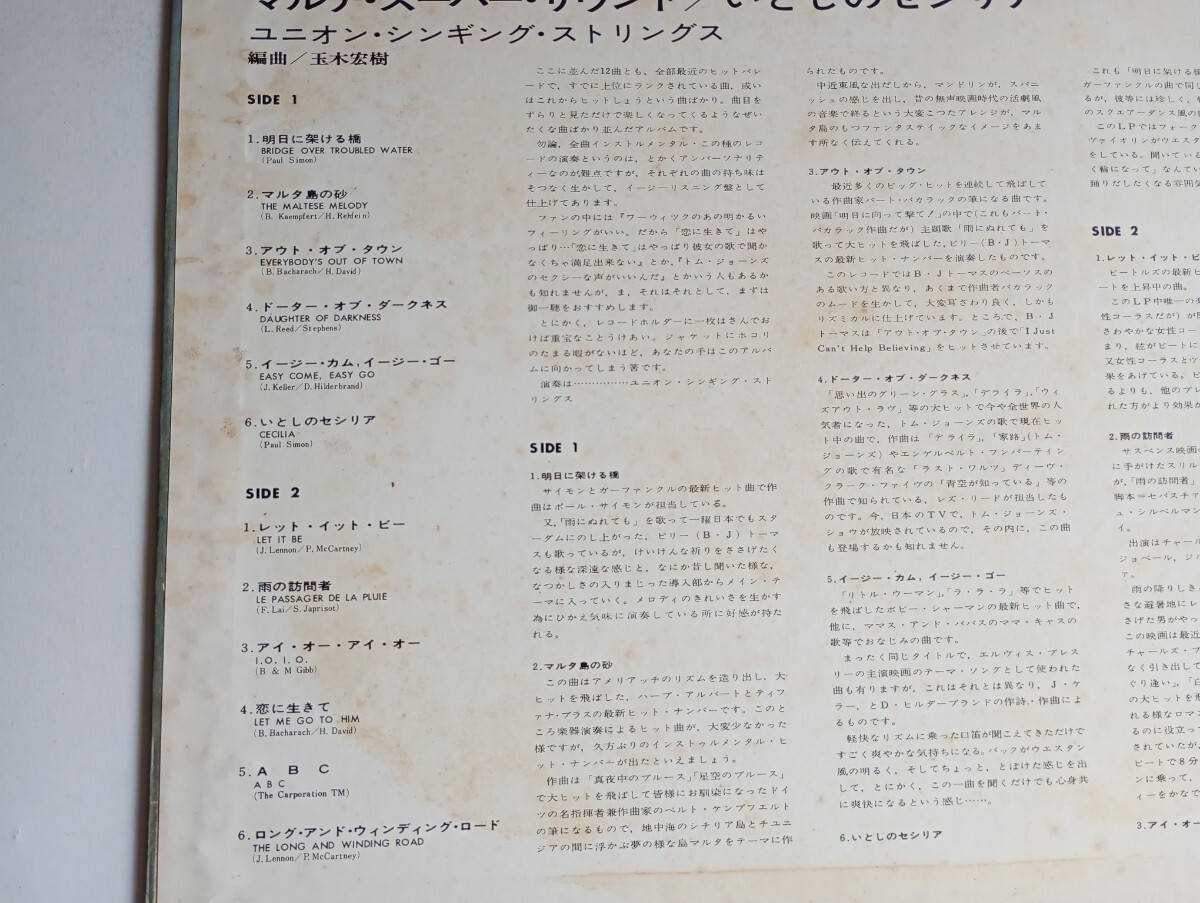 マルタ・スーパー・サウンド/いとしのセシリア
ユニオン・シンギング・ストリングス
編曲/玉木宏樹
SIDE 1
1.明日に架ける橋
BRIDGE OVER TROUBLED WATER
(Paul Simon)
2.マルタ島の砂
THE MALTESE MELODY
(B. Kaempfert/H. Rehfein)
3.アウト・オブ・タウン
EVERYBODY'S OUT OF TOWN
(B. Bacharach/H. David)
4.ドーター・オブ・ダークネス
DAUGHTER OF DARKNESS
(L. Reed/Stephens)
5.イージー・カム,イージー・ゴー
EASY COME, EASY GO
(J. Keller/D. Hilderbrand)
6.いとしのセシリア
CECILIA
(Paul Simon)
SIDE 2
1.レット・イット・ビー
LET IT BE
(J. Lennon/P. McCartney)
2.雨の訪問者
LE PASSAGER DE LA PLUIE
(F. Lai/S. Japrisot)
3.アイ・オー・アイ・オー
I.O. I. O.
(B & M Gibb)
4.恋に生きて
LET ME GO TO HIM
(B. Bacharach/H. David)
5.A B C
A B C
(The Carporation TM)
6.ロング・アンド・ウィンディング・ロード
THE LONG AND WINDING ROAD
(J. Lennon/P. McCartney)
ここに並んだ12曲とも、全部最近のヒットパレ
ードで、すでに上位にランクされている曲、或い
はこれからヒットしようという曲ばかり。曲目を
ずらりと見ただけで楽しくなってくるようなぜい
たくな曲ばかり並んだアルバムです。
勿論、全曲インストルメンタル・この種のレコ
ードの演奏というのは、とかくアンパーソナリテ
ィーなのが難点ですが、それぞれの曲の持ち味は
そつなく生かして、イージーリスニング盤として
仕上げてあります。
ファンの中には『ワーウィックのあの明かるい
フィーリングがいい。だから「恋に生きて」はや
っぱり…「恋に生きて」はやっぱり彼女の歌で聞か
なくちゃ満足出来ない』とか、『トム・ジョーンズ
のセクシーな声がいいんだ』とかいう人もあるか
も知れませんが、ま、それはそれとして、まずは
御一聴をおすすめします。
とにかく、レコードホルダーに一枚はさんでお
けば重宝なことうけあい。ジャケットにホコリ
のたまる暇がないほど、あなたの手はこのアルバ
ムに向かってしまう筈です。
演奏は……………ユニオン・シンギング・スト
リングス
SIDE 1
1.明日に架ける橋
サイモンとガーファンクルの最新ヒット曲で作
曲はポール・サイモンが担当している。
又、「雨にぬれても」を歌って一躍日本でもスタ
ーダムにのし上がった、ビリー(B・J)トーマ
スも歌っているが、けいけんな祈りをささげたく
なる様な深遠な感じと、なにか昔し聞いた様な、
なつかしさの入りまじった導入部からメイン・テ
ーマに入っていく。メロディのきれいさを生かす
為にひかえ気味に演奏している所に好感が持た
れる。
2.マルタ島の砂
この曲はアメリアッチのリズムを造り出し、大
ヒットを飛ばした、ハーブ・アルバートとティフ
ァナ・ブラスの最新ヒット・ナンバーです。このと
ころ楽器演奏によるヒット曲が、大変少なかった
様ですが、久方ぶりのインストゥルメンタル・ヒ
ット・ナンバーが出たといえましょう。
作曲は「真夜中のブルース」「星空のブルース」
で大ヒットを飛ばして皆様にお馴染になったドイ
ツの名指揮者兼作曲家のベルト・ケンプフェルト
の筆になるもので、地中海のシチリア島とチュニ
ジアの間に浮かぶ夢の様な島マルタをテーマに作
られたものです。
中近東風な出だしから、マンドリンが、スパニ
ッシュの感じを出し、昔の無声映画時代の活劇風
の音楽で終るという大変こったアレンジが、マル
タ島のもつファンタスティックなイメージをあま
す所なく伝えてくれる。
3.アウト・オブ・タウン
最近多くのビッグ・ヒットを連続して飛ばして
いる作曲家バート・バカラックの筆になる曲です。
映画「明日に向って撃て!」の中で(これもバート・
バカラック作曲だが)主題歌「雨にぬれても」を
歌って大ヒットを飛ばした、ビリー(B・J)トーマ
スの最新ヒット・ナンバーを演奏したものです。
このレコードではB・Jトーマスのペーソスの
ある歌い方と異なり、あくまで作曲者バカラック
のムードを生かして、大変耳ざわり良く、しかも
リズミカルに仕上げています。ところで、B・J
トーマスは「アウト・オブ・タウン」の後で「I Just
Can't Help Believing」をヒットさせています。
4.ドーター・オブ・ダークネス
「思い出のグリーン・グラス」、「デライラ」、「ウィ
ズアウト・ラヴ」等の大ヒットで今や全世界の人
気者になった、トム・ジョーンズの歌で現在ヒッ
ト中の曲で、作曲は「デライラ」、「家路」(トム・
ジョーンズ)やエンゲルベルト・フンパーティン
グの歌で有名な「ラスト・ワルツ」ディーヴ・
クラーク・ファイヴの「青空が知っている」等の
作曲で知られている、レズ・リードが担当したも
のです。今、日本のTVで、トム・ジョーンズ・
ショウが放映されているので、その内に、この曲
も登場するかも知れません。
5.イージー・カム,イージー・ゴー
「リトル・ウーマン」、「ラ・ラ・ラ」等でヒット
を飛ばしたボビー・シャーマンの最新ヒット曲で、
他に、ママス・アンド・パパスのママ・キャスの
歌等でおなじみの曲です。
まったく同じタイトルで、エルヴィス・プレス
リーの主演映画のテーマ・ソングとして使われた
曲も有りますが、これはそれとは異なり、J・ケ
ラー、とD・ヒルダーブランドの作詩・作曲によ
るものです。
軽快なリズムに乗った口笛が聞こえてきただけで
すごく爽やかな気持ちになる。バックがウエスタン
風の明るく、そしてちょっと、とぼけた感じを出
して、とにかく、この一曲を聞くだけでも心身共
に爽快になるという感じ……。
6.いとしのセシリア
これも「明日に架ける橋
ガーファンクルの曲で同じ
るが、彼等には珍しく、
のスクエアーダンス風の
このLPではフォーク
ヴァイオリンがウエスタ
をしている。聞いている
く輪になって」なんてい
踊りだしたくなる雰囲気
SIDE 2
1.レット・イット・ビ
ビートルズの最新ヒ
ートを上昇中の曲。
このLP中唯一の
性コーラスだが)が
さわやかな女性コー
まり、絃がビートに
又女性コーラスとヴ
果をあげている。ビ
るよりも、他のプレ
れた方がより効果か
2.雨の訪問者
サスペンス映画の
に手がけたスリル
が、「雨の訪問者」
脚本=セバスチァ
ュ・シルベルマン
イ。
出演はチャール
ジョベール、ジ
ア。
雨の降りしき
さな避暑地にし
さげた男がやっ
この映画は最近
チャールズ・ブ
なく引き出して
ぐり逢い」、「白
の大ヒットを飛
れる様なロマン
るのに役立って
されていたが、
ビートで8分
ンに乗って、
ィーをかなで
3.アイ・オー